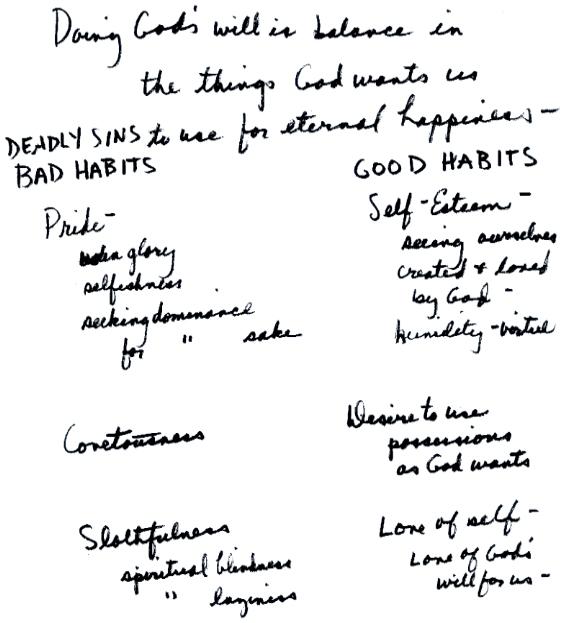 Doing God's will is balance in
the things God wants us
to use for eternal happiness -
DEADLY SINS
BAD HABITS
Pride -
glory
selfishness
seeking dominance
for " sake
Covetousness
Slothfulness
spiritual blindness
" laziness
GOOD HABITS
Self-Esteem -
seeing ourselves
created & loved
by God -
humidity - virtue
Desire to use
possessions
as God wants
Love of self -
Love of God's
will for us -